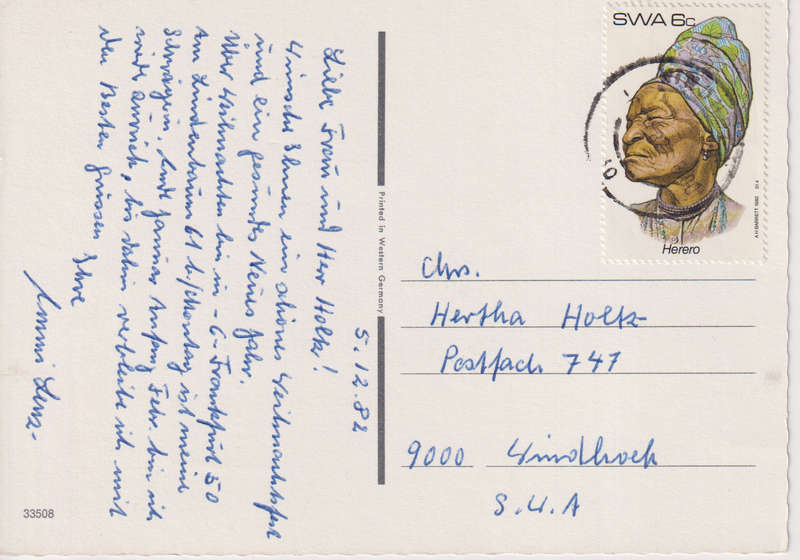 5.12.82
Liebe Frau und Herr Holtz!
Wünsche Ihnen ein schönes Weihnachtsfest
und ein gesundes Neues Jahr.
Über Weihnachten bin in -6- Frankfurt 50
Am Lindenbaum 61 b/ ist meine
Schwägerin, Ende Januar Anfang Febr. bin ich
wieder zurück, bis dahin verbleibe ich mit
den Besten Grüssen Ihre
Emmi Lenz-
33508
Printed in Western Germany
SWA 6c
Herero
A H BARRETT 1982
Hertha Holtz-
Postfach 741
9000 Windhoek
S.W.A